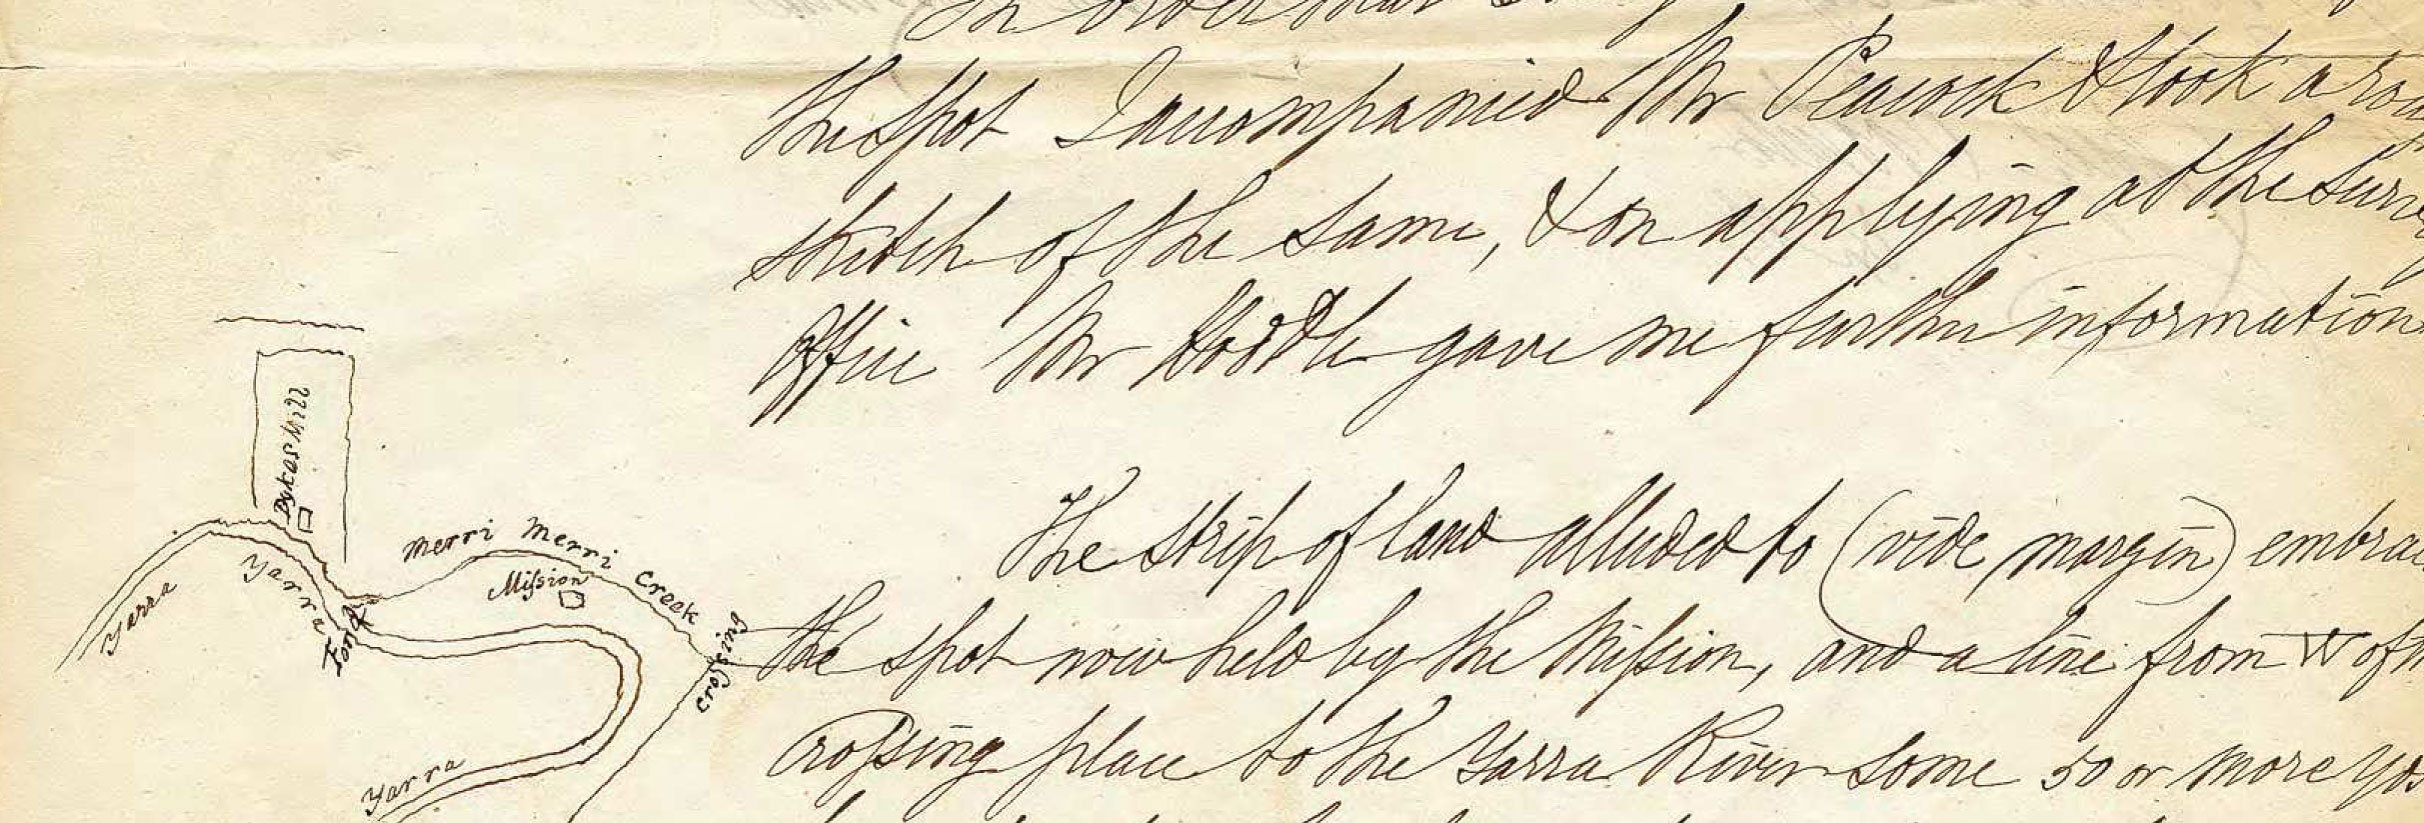 In order that
the spot I accompanied Mr Peacock & took a
sketch of the same, & on applying at the
Office Mr Hoddle gave me further information
The strip of land alluded to (vide margin)
the spot now held by the Mission, and a line from W of
Crossing place to the Yarra River some 50 or more
Dykes Mill
Merri Merri Creek
Mission
Yarra
Yarra
Ford
Crossing
Yarra